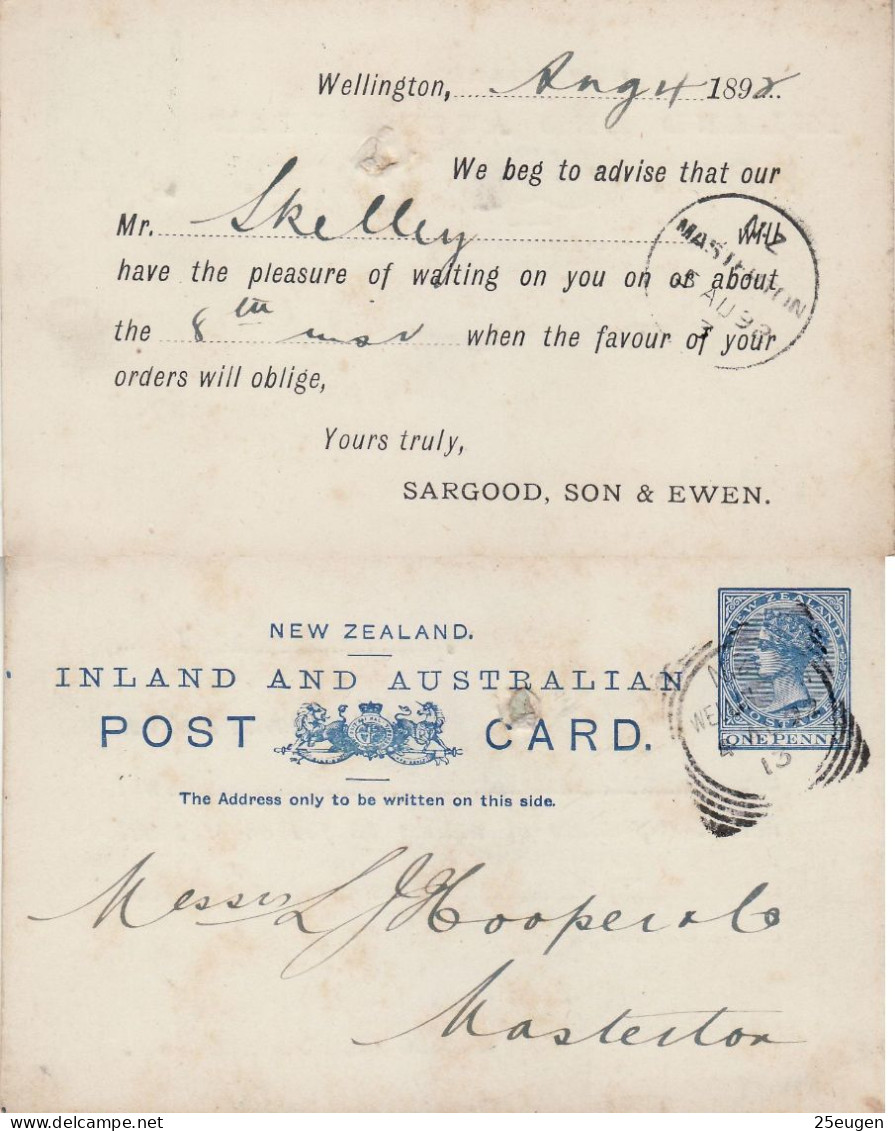 Wellington, Aug 4 1892
We beg to advise that our
Mr. Skelley will
have the pleasure of waiting on you on or about
the 8th inst when the favour of your
orders will oblige,
Yours truly,
SARGOOD, SON & EWEN.
N.Z
MASTERTON
AU 92
NEW ZEALAND.
INLAND AND AUSTRALIAN
POST CARD.
The Address only to be written on this side.
NEW ZEALAND
POSTAGE
ONE PENNY
13
Messrs L J Hooper & Co
Masterton
25eugen